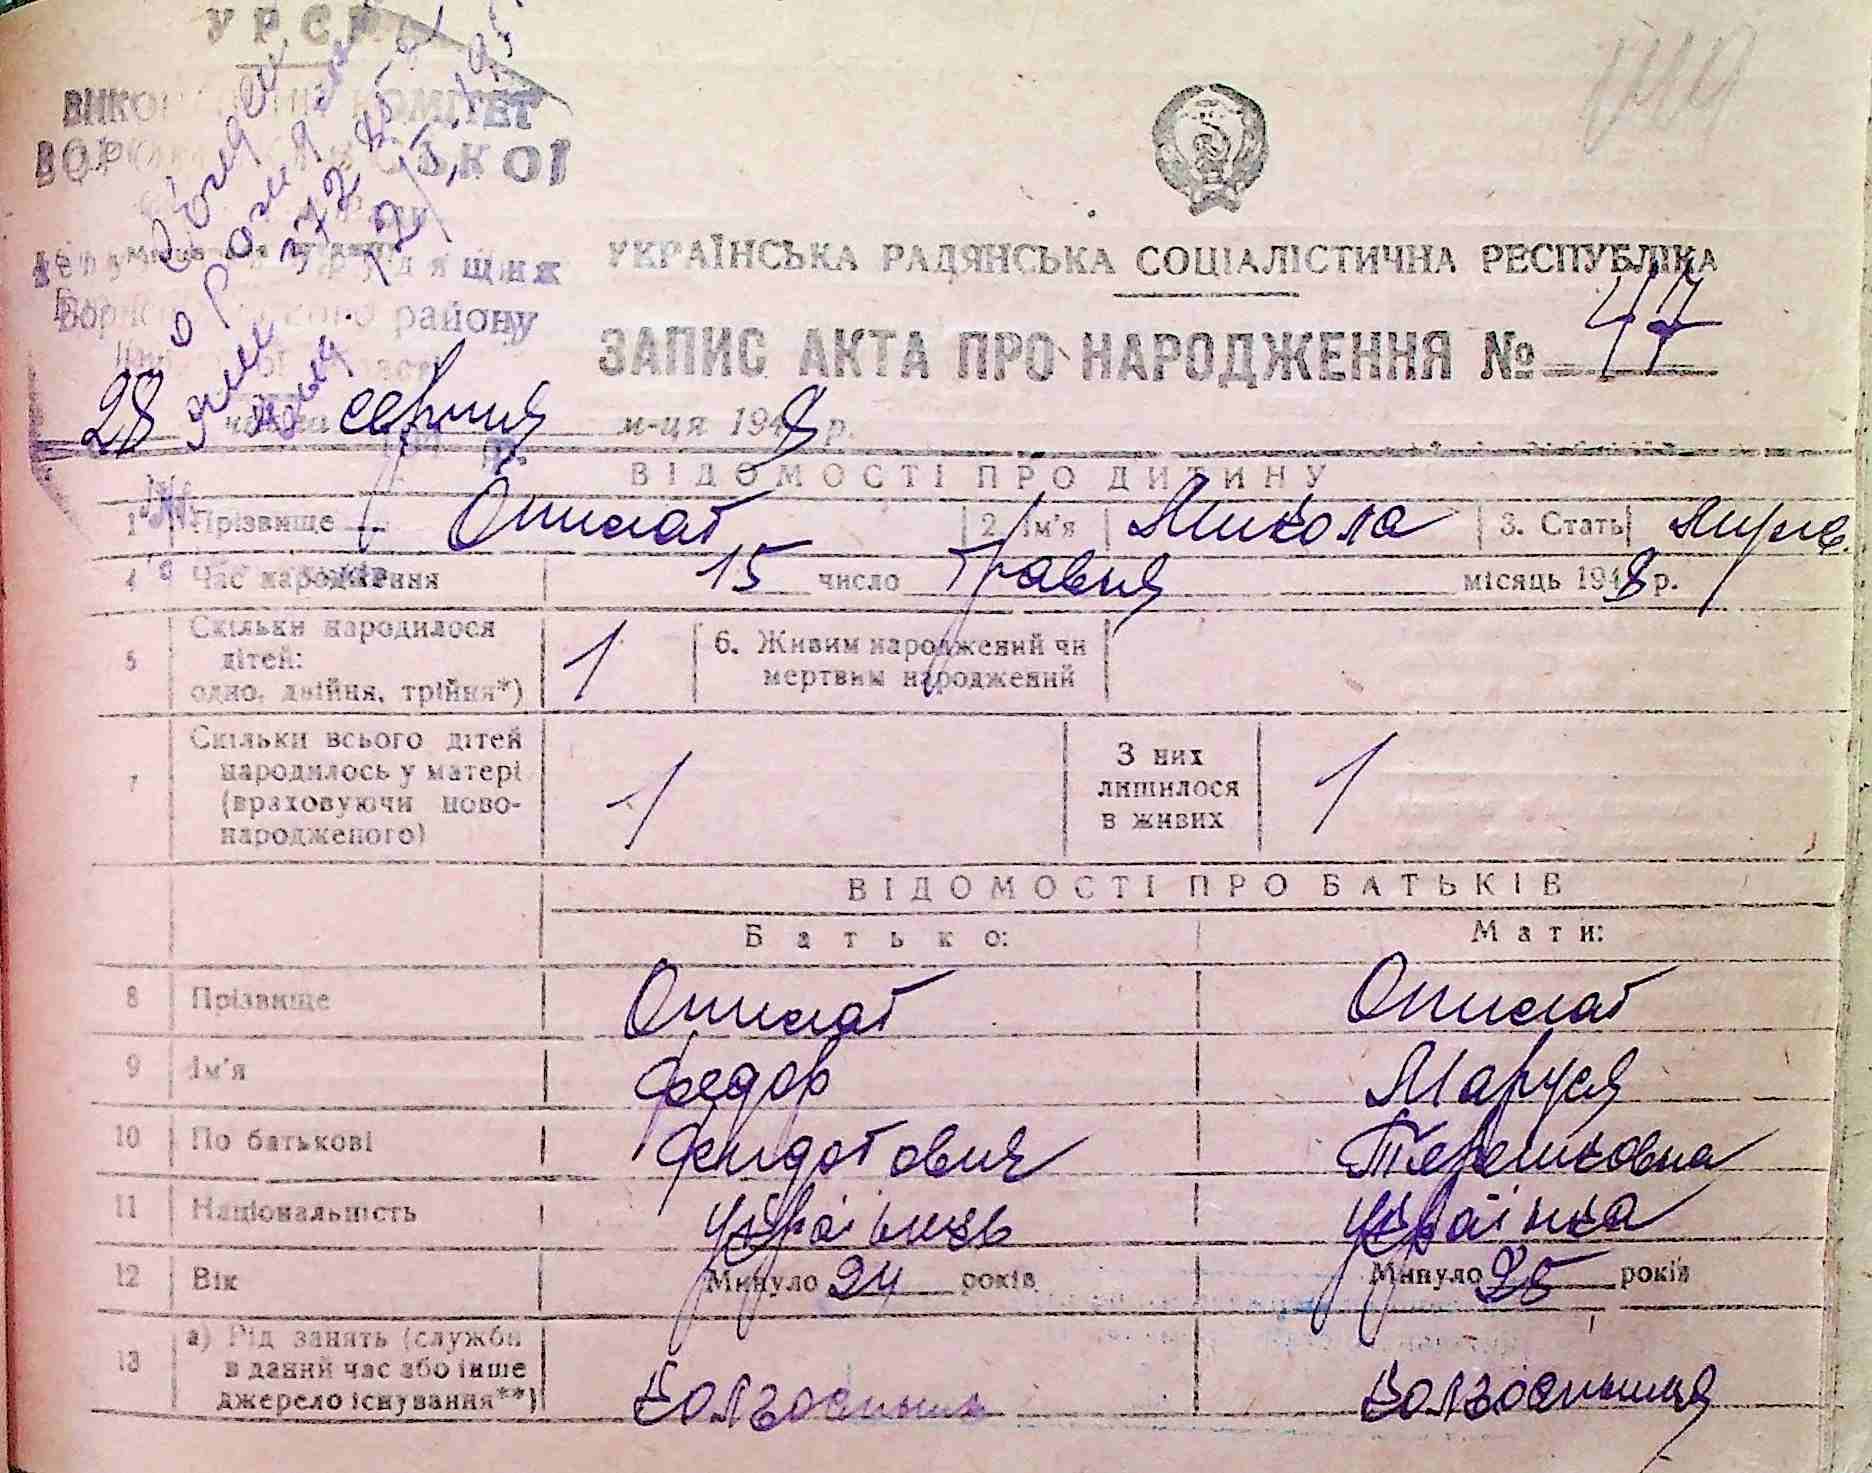 УРСР
ВИКОНАВЧИЙ КОМІТЕТ
УКРАЇНСЬКА РАДЯНСЬКА СОЦІАЛІСТИЧНА РЕСПУБЛІКА
району
ЗАПИС АКТА ПРО НАРОДЖЕННЯ № 47
28 серпня м-ця 1948 р.
ВІДОМОСТІ ПРО ДИТИНУ
1 Прізвище Опишат 2. Ім'я Микола 3. Стать
4 Час народження 15 число травня місяць 1948 р.
5 Скільки народилося дітей: одно, двійня, трійня*) 1 6. Живим народжений чи мертвим народжений
7 Скільки всього дітей народилось у матері (враховуючи новонародженого) 1 З них лишилося в живих 1
ВІДОМОСТІ ПРО БАТЬКІВ
Батько: Мати:
8 Прізвище Опишат Опишат
9 Ім'я Федор Маруся
10 По батькові Феидотович Терешковна
11 Національність українець українка
12 Вік Минуло 24 років Минуло 25 років
13 а) Рід занять (служби в даний час або інше джерело існування**) колгоспник колгоспниця